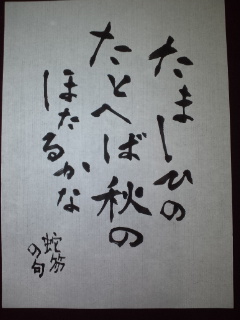 たましひの
たとへば秋の
ほたるかな
蛇笏
の句